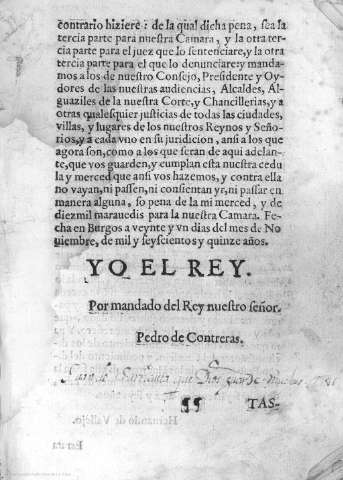 contrario hiziere: de la qual dicha pena, sea la
tercia parte para nuestra Camara, y la otra ter-
cia parte para el juez que lo sentenciare, y la otra
tercia parte para el que lo denunciare: y manda-
mos a los de nuestro Consejo, Presidente y Oy-
dores de las nuestras audiencias, Alcaldes, Al-
guaziles de la nuestra Corte, y Chancillerias, y a
otras qualesquier justicias de todas las ciudades,
villas, y lugares de los nuestros Reynos y Seño-
rios, y a cada vno en su juridicion, ansi a los que
agora son, como a los que seran de aqui adelan-
te, que vos guarden, y cumplan esta nuestra cedu
la y merced que ansi vos hazemos, y contra ella
no vayan, ni passen, ni consientan yr, ni passar en
manera alguna, so pena de la mi merced, y de
diez mil marauedis para la nuestra Camara. Fe-
cha en Burgos a veynte y vn dias del mes de No
uiembre, de mil y seyscientos y quinze años.
YO EL REY.
Por mandado del Rey nuestro señor.
Pedro de Contreras.
que Dios guarde muchos
¶¶ TAS-
Hernando de Vallejo.